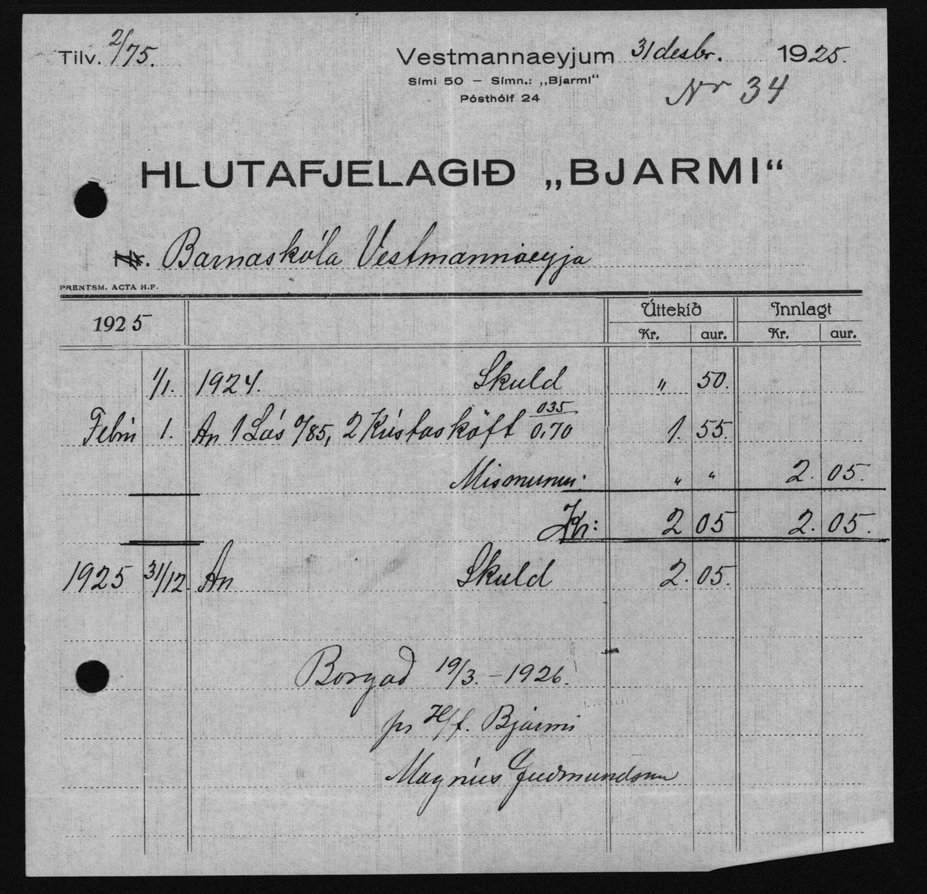 Tilv. 2/75.
Vestmannaeyjum 31 desbr. 1925.
Sími 50 – Símn.: „Bjarmi“
Pósthólf 24
Nr 34
HLUTAFJELAGIÐ „BJARMI“
Barnaskóla Vestmannaeyja
PRENTSM. ACTA H.F.
1925 Úttekið Innlagt
Kr. aur. Kr. aur.
1/1. 1924. Skuld „ 50.
Febrú 1. An 1 Lás 0/85, 2 Kústasköft 035
0,70 1. 55.
Mismunur. „ „ 2. 05.
Kr: 2 05 2. 05.
1925 31/12. An Skuld 2. 05.
Borgað 19/3. – 1926.
pr H/f. Bjarmi
Magnús Guðmundsson